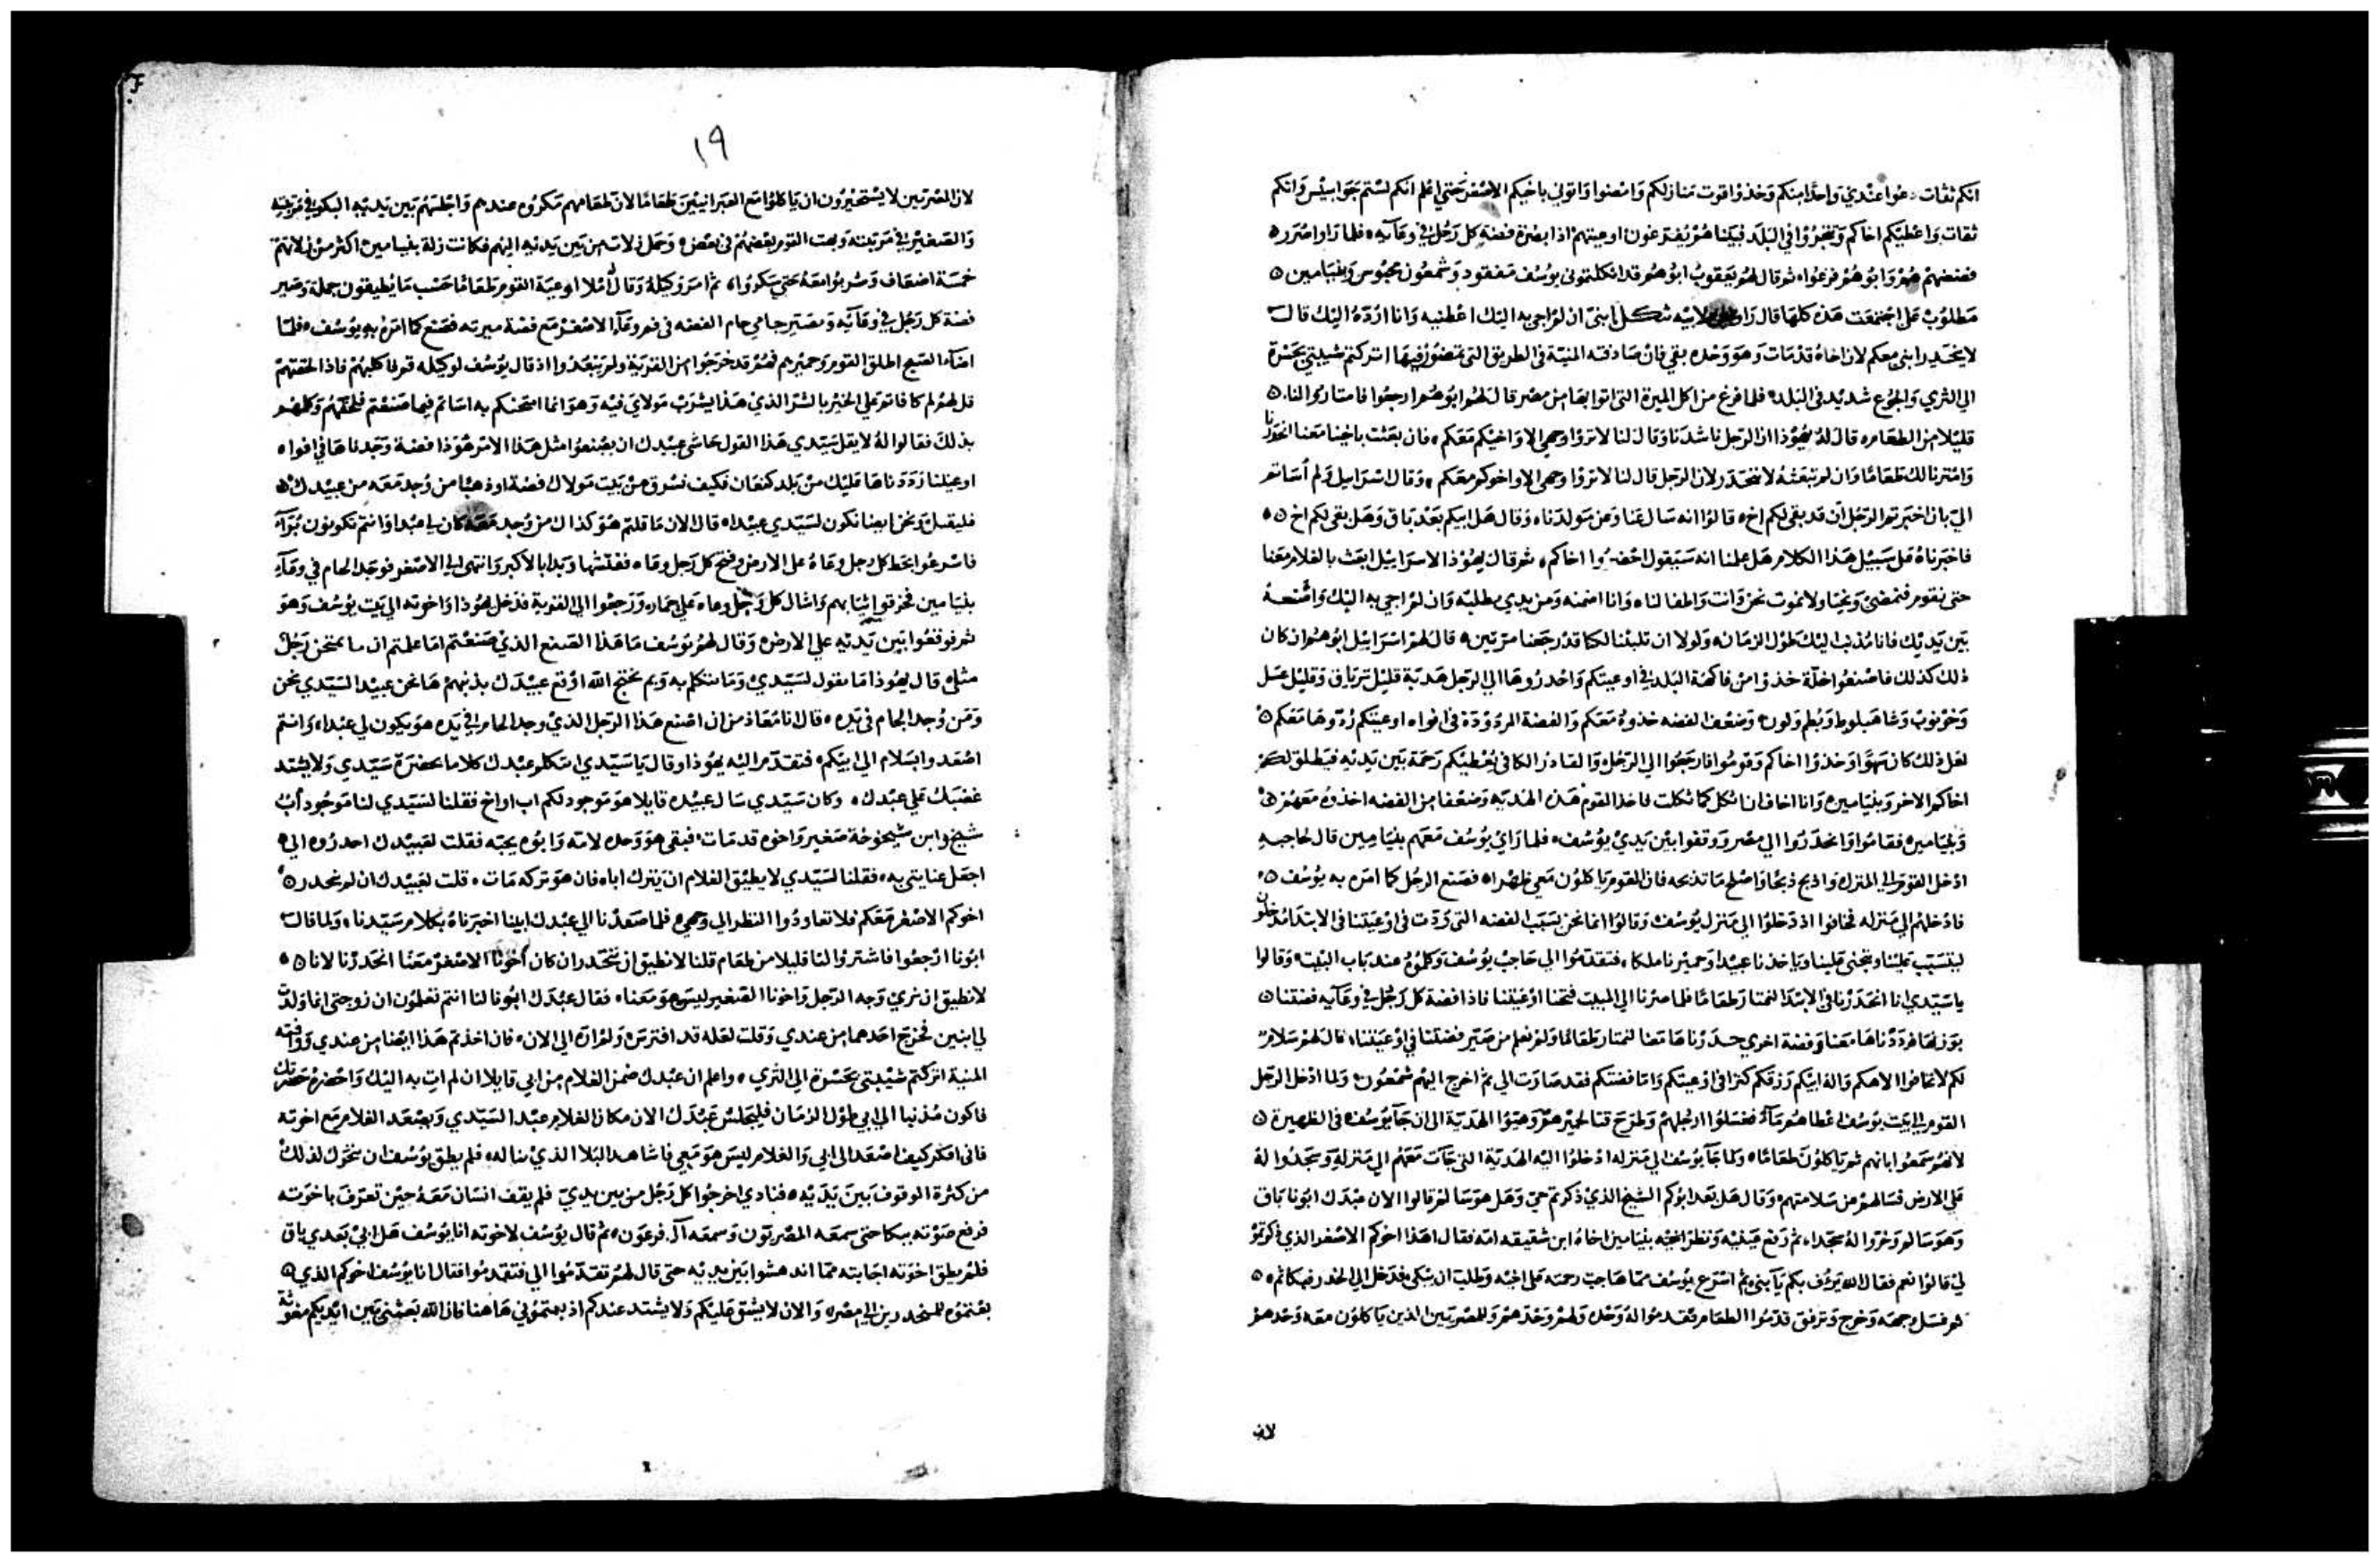 انكم ثقات دعوا عندي واحدا منكم وخذوا قوت منازلكم وامضوا واتوني باخيكم الاصغر حتي اعلم انكم لستم جواسيس وانكم
ثقات واعطيكم اخاكم وتتجروا في البلد فبينا هم يفرغون اوعيتهم اذا بصرة فضة كل رجل في وعآيه فلما راوا صرر
فضتهم هم وابوهم فزعوا ثم قال لهم يعقوب ابوهم قد اثكلتموني يوسف مفقود وشمعون محبوس وبنيامين
مطلوب علي اجتمعت هذه كلها قال لابيه ثكل ابني ان لم اجي به اليك اعطنيه وانا اردّه اليك قال
لا ينحدر ابني معكم لان اخاه قد مات وهو وحده بقي فان صادفته المنية في الطريق التي تمضون فيها انزلتم شيبتي بحسرة
الي الثري والجوع شديد في البلد فلما فرغ من اكل الميرة التي اتوا بها من مصر قال لهم ابوهم ارجعوا فامتاروا لنا
قليلا من الطعام قال له يهوذا ان الرجل ناشدنا وقال لنا لا تروا وجهي الا واخيكم معكم فان بعثت باخينا معنا انحدرنا
وامترنا لك طعاما وان لم تبعثه لا ننحدر لان الرجل قال لنا لا تروا وجهي الا واخوكم معكم وقال اسراييل ولم اساتم
اليّ بان اخبرتم الرجل ان قد بقي لكم اخ قالوا انه سال عنا وعن مولدنا وقال هل ابيكم بعد باق وهل بقي لكم اخ
فاخبرناه علي سبيل هذا الكلام هل علمنا انه سيقول احضروا اخاكم ثم قال يهوذا لاسراييل ابعث بالغلام معنا
حتي نقوم فنمضي ونحيا ولا نموت نحن وانت واطفالنا وانا اضمنه ومن يدي بطلبه وان لم اجي به اليك واضعه
بين يديك فانا مذنب اليك طول الزمان ولولا ان تلبثنا لكنا قد رجعنا مرتين قال لهم اسراييل ابوهم ان كان
ذلك كذلك فاصنعوا خلّة خذوا من فاكهة البلد في اوعيتكم واحدروها الي الرجل هدية قليل ترياق وقليل عسل
وخرنوب وشاهبلوط وبطم ولوز وضعف الفضه خذوه معكم والفضة المردودة في افواه اوعيتكم ردّوها معكم
لعل ذلك كان سهوا وخذوا اخاكم وقوموا فارجعوا الي الرجل والقادر الكافي يعطيكم رحمة بين يديه فيطلق لكم
اخاكم الاخر وبنيامين وانا اخاف ان اثكل كما ثكلت فاخذ القوم هذه الهديه وضعفا من الفضه اخذوه معهم
وبنيامين فقاموا وانحدروا الي مصر ووقفوا بين يدي يوسف فلما راي يوسف معهم بنيامين قال لحاجبه
ادخل القوم الي المنزل واذبح ذبحا واصلح ما تذبحه فان القوم ياكلون معي ظهرا فصنع الرجل كما امره به يوسف
فادخلهم الي منزله فخافوا اذ دخلوا الي منزل يوسف وقالوا انما نحن بسبب الفضه التي ردّت في اوعيتنا في الابتدا مدخلون
ليتسبب علينا ويتجني علينا وياخذنا عبيدا وحميرنا ملكا فتقدموا الي حاجب يوسف وكلموه عند باب البيت وقالوا
يا سيدي انا انحدرنا في الابتدا لنمتار طعاما فلما صرنا الي المبيت فتحنا اوعيتنا فاذا فضة كل رجل في وعآيه فضتنا
بوزنها فرددناها معنا وفضة اخري حدرناها معنا لنمتار طعاما ولم نعلم من صيّر فضتنا في اوعيتنا قال لهم سلام
لكم لا تخافوا الاهكم واله ابيكم رزقكم كنزا في اوعيتكم واما فضتكم فقد صارت الي ثم اخرج اليهم شمعون ولما ادخل الرجل
القوم الي بيت يوسف اعطاهم مآء فغسلوا ارجلهم وطرح قتا لحميرهم وهيّوا الهدية الي ان جآ يوسف في الظهيرة
لانهم سمعوا بانهم ثم ياكلون طعاما ولما جآ يوسف الي منزله ادخلوا اليه الهدية التي جآت معهم الي منزله وسجدوا له
علي الارض فسالهم عن سلامتهم وقال هل بعد ابوكم الشيخ الذي ذكرتم حي وهل هو سالم قالوا الان عبدك ابونا باق
وهو سالم وخروا له سجدا ثم رفع عينيه ونظر اخيه بنيامين اخاه ابن شقيقه امه فقال اهذا اخوكم الاصغر الذي ذكرتم
لي قالوا نعم فقال الله يرؤف بكم يا بني ثم اسرع يوسف مما هاجت رحمته علي اخيه وطلب ان يبكي فدخل الي الخدر فبكا ثم
ثم غسل وجهه وخرج وترفق قدموا الطعام فقدموا له وحده ولهم وحدهم وللمصريين الذين ياكلون معه وحدهم
لان
١٩
لان المصريين لا يستخيرون ان ياكلوا مع العبرانيين طعاما لان طعامهم مكروه عندهم واجلسهم بين يديه البكور في مرتبته
والصغير في مرتبته وبهت القوم بعضهم في بعض وحمل زلات من بين يديه اليهم فكانت زلة بنيامين اكثر من زلاتهم
خمسة اضعاف وشربوا معه حتي سكروا ثم امر وكيله وقال له املا اوعية القوم طعاما حسب ما يطيقون حملة وصير
فضة كل رجل في وعآيه وتصير جامي جام الفضه في فم وعآ الاصغر مع فضة ميرته فصنع كما امره به يوسف فلما
اضآء الصبح اطلق القوم وحميرهم فهم قد خرجوا من القرية ولم يبعدوا اذ قال يوسف لوكيله قم فاكلبهم فاذا لحقتهم
قل لهم لم كافاتم علي الخير بالشر الذي هذا يشرب مولاي فيه وهو انما امتحنكم به اساتم فيما صنعتم فلحقهم وكلمهم
بذلك فقالوا له لا يقل سيدي هذا القول حاشي عبيدك ان يصنعوا مثل هذا الامر هوذا فضة وجدناها في افواه
اوعيتنا رددناها عليك من بلد كنعان فكيف نسرق من بيت مولاك فضة او ذهبا من وُجد معه من عبيدك
فليقتل ونحن ايضا نكون لسيدي عبيدا قال الان ما قلتم هو كذاك من وُجد معه كان لي عبدا وانتم تكونون بُرآء
فاسرعوا بحط كل رجل وعآه علي الارض وفتح كل رجل وعاه ففتشها وبدا بالاكبر وانتهي الي الاصغر فوجد الجام في وعآء
بنيامين فخرقوا ثيابهم واشال كل رجل وعاه علي حماره ورجعوا الي القرية فدخل يهوذا واخوته الي بيت يوسف وهو
ثم فوقعوا بين يديه علي الارض وقال لهم يوسف ما هذا الصنع الذي صنعتم اما علمتم ان ما يمتحن رجل
مثلي قال يهوذا ما نقول لسيدي وما نتكلم به وبم نحتج الله اوقع عبيدك بذنبهم ها نحن عبيدا لسيدي نحن
ومن وُجد الجام في يده قال انا معاذ من ان اصنع هذا الرجل الذي وجد الجام في يده هو يكون لي عبدا وانتم
اصعدوا بسلام الي ابيكم فتقدم اليه يهوذا وقال يا سيدي يتكلم عبدك كلاما بحضرة سيدي ولا يشتد
غضبك علي عبدك وكان سيدي سال عبيده قايلا هو موجود لكم اب او اخ فقلنا لسيدي لنا موجود اب
شيخ وابن شيخوخة صغير واخوه قد مات فبقي هو وحده لامه وابوه يحبه فقلت لعبيدك احدروه الي
اجعل عنايتي به فقلنا لسيدي لا يطيق الغلام ان يترك اباه فان هو تركه مات قلت لعبيدك ان لم ينحدر
اخوكم الاصغر معكم فلا تعاودوا النظر الي وجهي فلما صعدنا الي عبدك ابينا اخبرناه بكلام سيدنا ولما قال
ابونا ارجعوا فاشتروا لنا قليلا من طعام قلنا لا نطيق ان ننحدر ان كان اخونا الاصغر معنا انحدرنا لانا
لا نطيق ان نري وجه الرجل واخونا الصغير ليس هو معنا فقال عبدك ابونا لنا انتم تعلمون ان زوجتي انما ولدت
لي ابنين فخرج احدهما من عندي وقلت لعله قد افترس ولم اراه الي الان فان اخذتم هذا ايضا من عندي ووافته
المنية انزلتم شيبتي بحسرة الي الثري واعلم ان عبدك ضمن الغلام من ابي قايلا ان لم ات به اليك واحضره حضرتك
فاكون مذنبا الي ابي طول الزمان فليجلس عبدك الان مكان الغلام عبدا لسيدي ويصعد الغلام مع اخوته
فاني افكر كيف اصعد الي ابي والغلام ليس هو معي فاشاهد البلا الذي يناله فلم يطق يوسف ان يتحرك لذلك
من كثرة الوقوف بين يديه فنادي اخرجوا كل رجل من بين يديّ فلم يقف انسان معه حين تعرّف باخوته
فرفع صوته ببكا حتي سمعه المصريون وسمعه آل فرعون ثم قال يوسف لاخوته انا يوسف هل ابي بعدي باق
فلم يطق اخوته اجابته مما اندهشوا بين يديه حتي قال لهم تقدموا الي فتقدموا فقال انا يوسف اخوكم الذي
بعتموه للمنحدرين الي مصر والان لا يشق عليكم ولا يشتد عندكم اذ بعتموني هاهنا فان الله بعثني بين ايديكم مغوثة